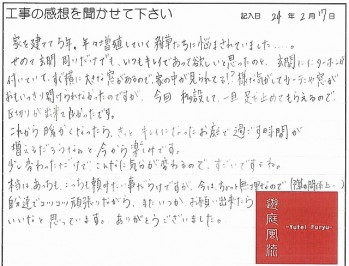 工事の感想を聞かせて下さい 記入日 24年2月17日
家を建てて5年。年々増殖していく雑草たちに悩まされていました…。
せめて玄関周りだけでも、いつもキレイであって欲しいと思ったのと、玄関にインターホンが
付いていて、すぐ横に大きな窓があるので、家の中が見られてる!?様な気がしてカーテンや窓が
おもいっきり開けられなかったのですが、今回 柵設して、一旦足を止めてもらえるので、
区切りが出来て良かったです。
これから暖かくなったら、きっと キレイになったお庭で過ごす時間が
増えるだろうなぁと今から楽しみです。
少し変わっただけで こんなに気分が変わるので、すごいですよね。
本当はあっちも、こっちも頼みたい事だらけですが、今は、ちょっと無理なので
自達でコツコツ頑張りながら、またいつか、お願い出来たら
いいなと思っています。ありがとうございました。
遊庭風流
-Yutei Furyu-